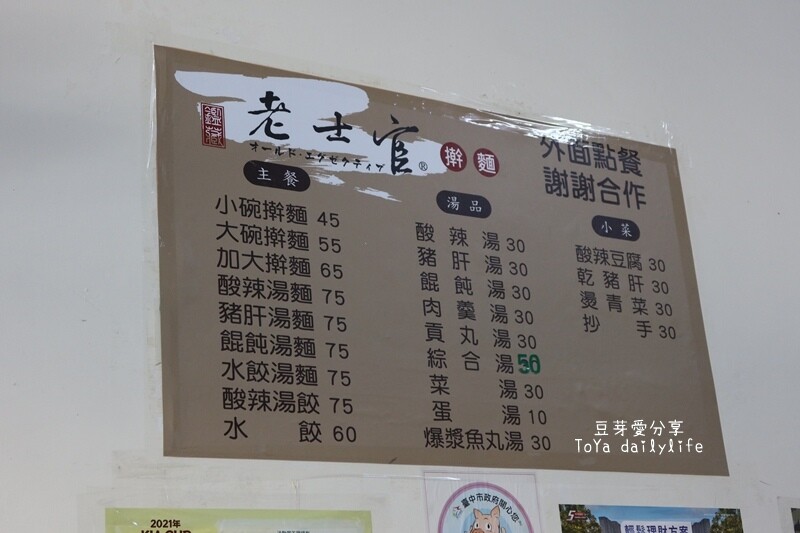 鑑藏
老士官
オールド・エグゼクティブ®
擀麵
外面點餐
謝謝合作
主餐
小碗擀麵 45
大碗擀麵 55
加大擀麵 65
酸辣湯麵 75
豬肝湯麵 75
餛飩湯麵 75
水餃湯麵 75
酸辣湯餃 75
水餃 60
湯品
酸辣湯 30
豬肝湯 30
餛飩湯 30
肉羹湯 30
貢丸湯 30
綜合湯 50
菜湯 30
蛋湯 10
爆漿魚丸湯 30
小菜
酸辣豆腐 30
乾豬肝 30
燙青菜 30
抄手 30
豆芽愛分享
ToYa dailylife
2021年
臺中市政府關心您
輕鬆理財方案